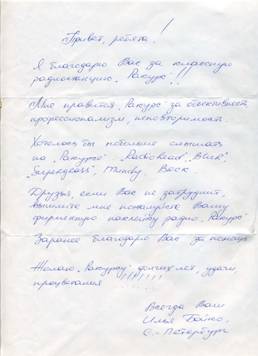 Привет, ребята!
Я благодарю Вас за классную
радиостанцию „Ракурс"!!
Мне нравится „Ракурс" за объективность,
профессионализм, неповторимость
Хотелось бы побольше слышать
на „Ракурсе" „Radiohead", „Blur",
„Supergrass", Beck
Друзья, если Вас не затруднит,
вышлите мне пожалуйста Вашу
фирменную наклейку радио „Ракурс"
Заранее благодарю Вас за помощь
Желаю „Ракурсу" долгих лет, удачи
процветания !!!!!!!
Всегда Ваш
Илья
С.-Петербург